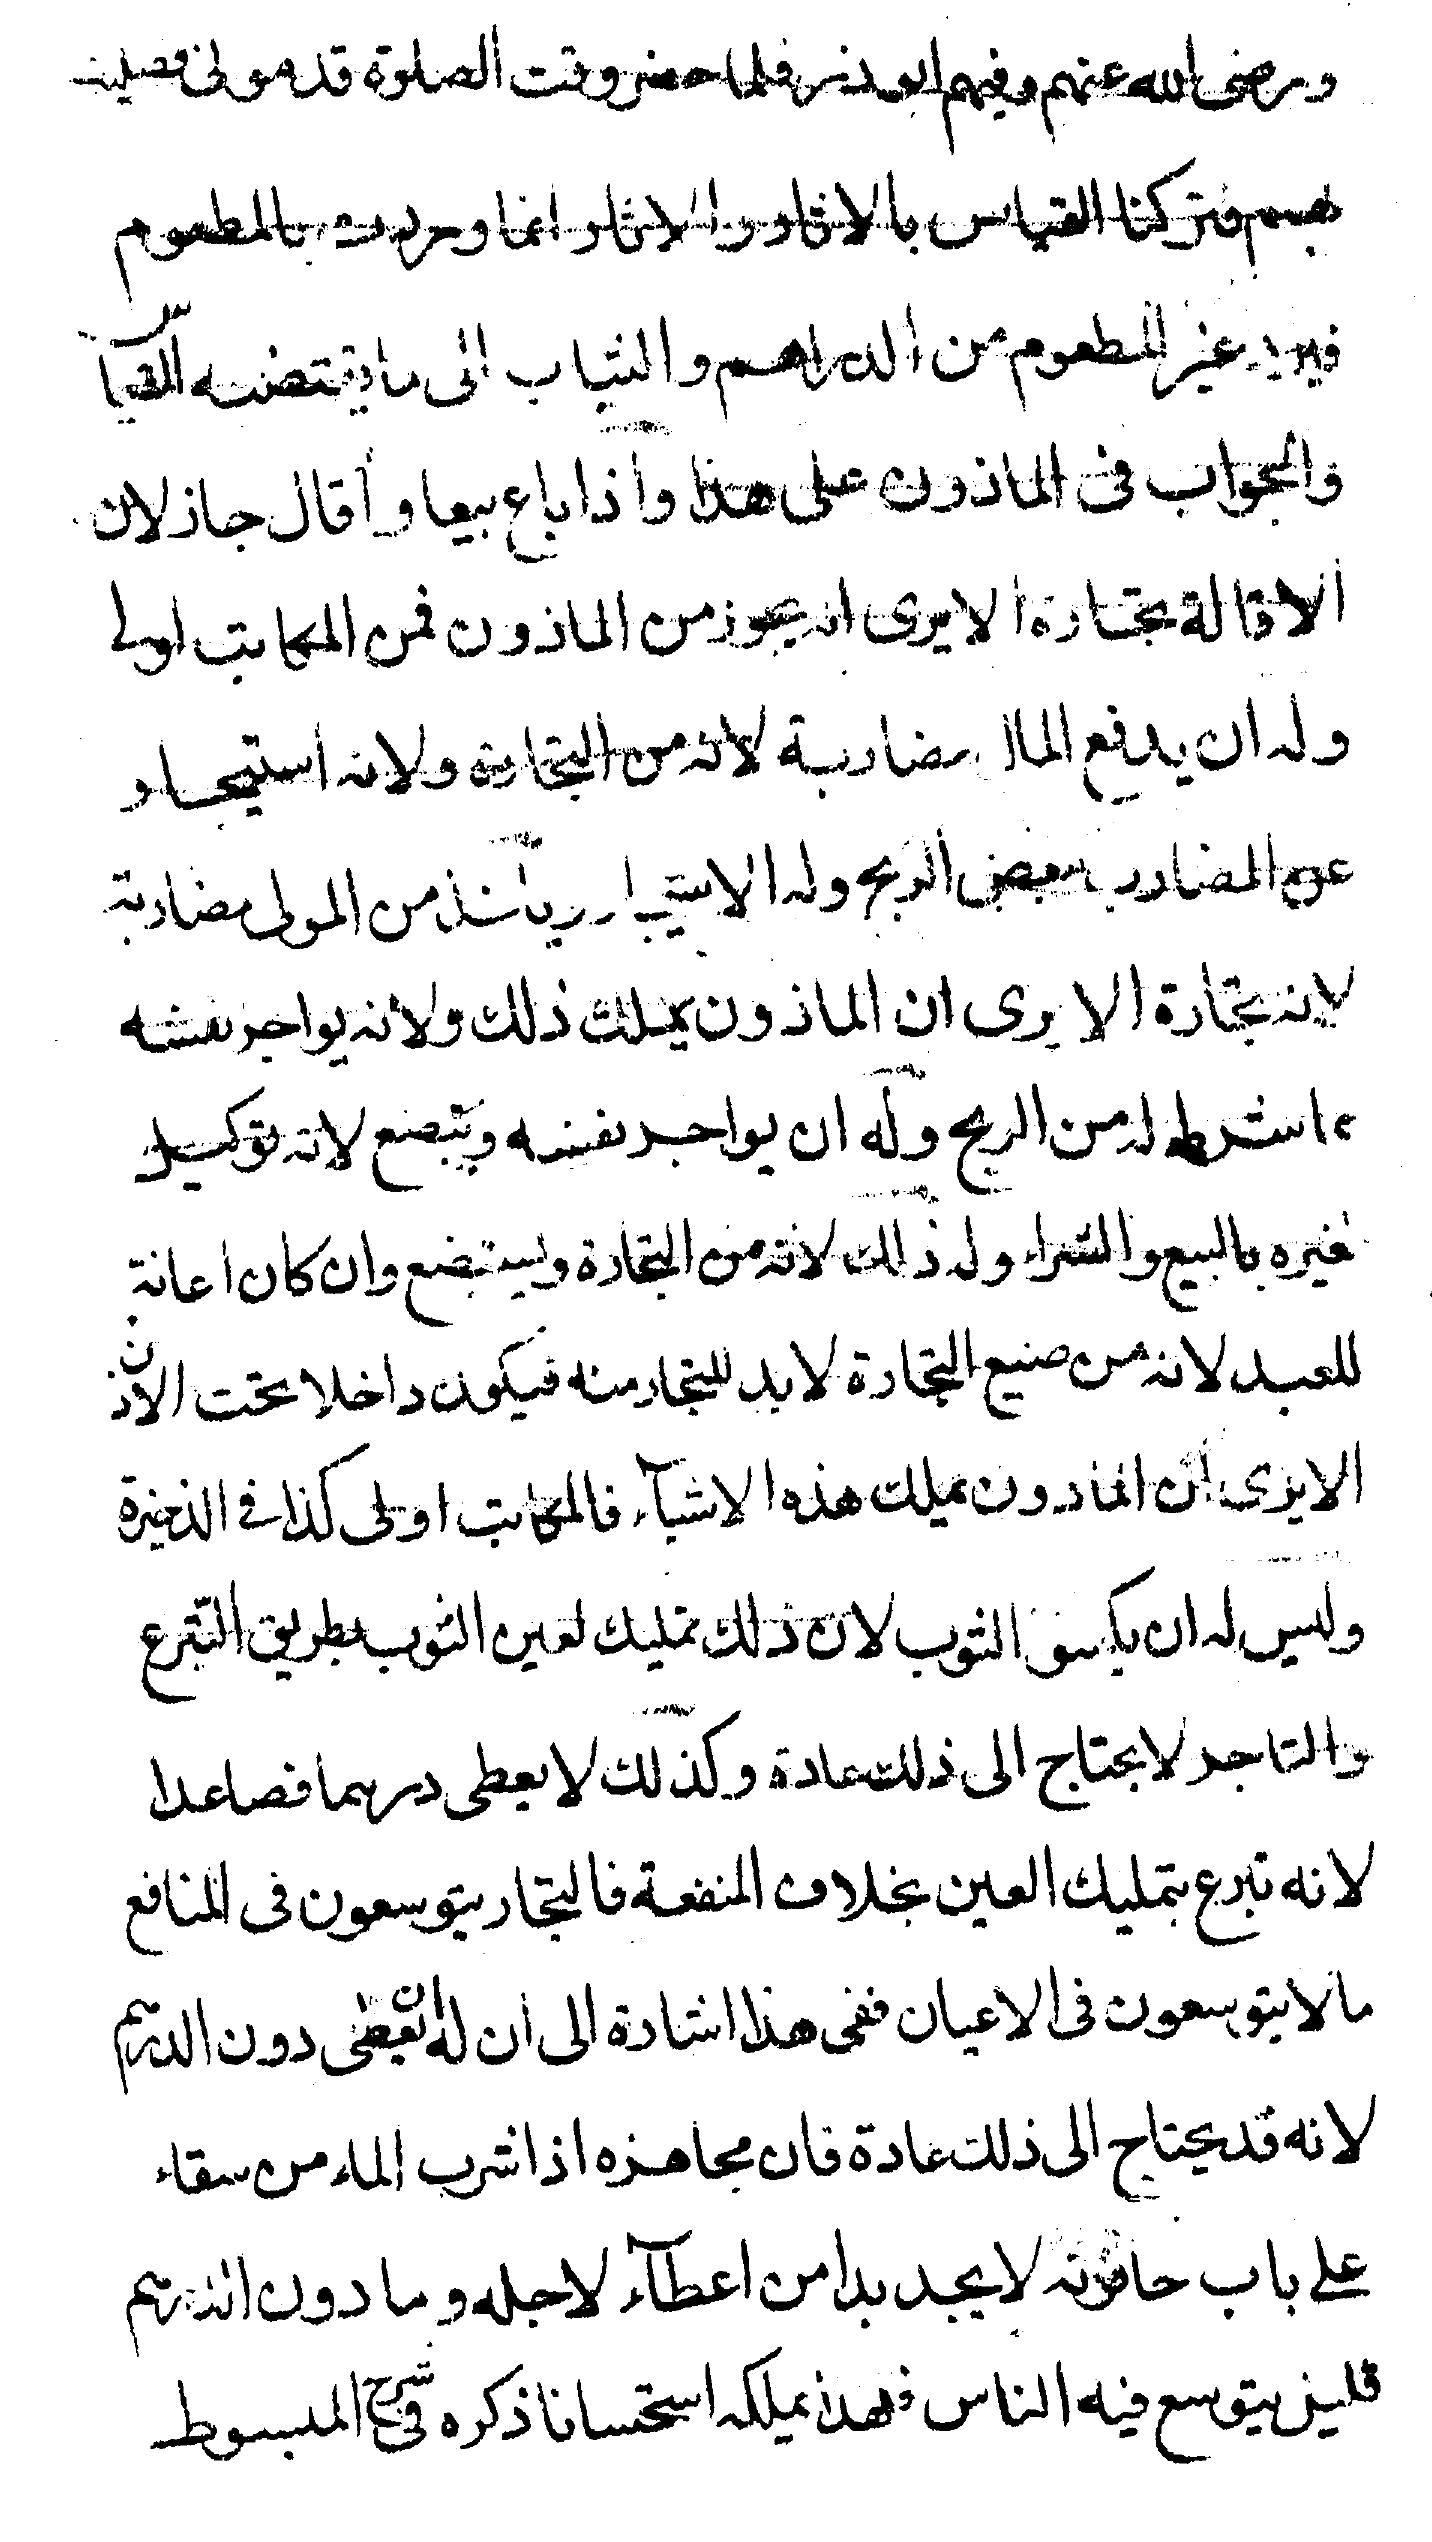 ورضى الله عنهم وفيهم ابو ذر فلما حضر وقت الصلوة قدمونى فصليت
بهم فتركنا القياس بالاثار والاثار انما وردت بالمطعوم
فيرد غير المطعوم من الدراهم والثياب الى ما يقتضيه القيا
والجواب فى الماذون على هذا واذا باع بيعا واقال جاز لان
الاقالة تجارة الا يرى انه يجوز من الماذون فمن المكاتب اولى
وله ان يدفع المال مضاربة لانه من التجارة ولانه استيجار
عن المضارب ببعض الربح وله الاستيجار وياخذ من المولى مضاربة
لانه تجارة الا يرى ان الماذون يملك ذلك ولانه يواجر نفسه
ما شرط له من الربح وله ان يواجر نفسه ويبضع لانه توكيل
لغيره بالبيع والشراء وله ذلك لانه من التجارة ويستبضع وان كان اعانة
للعبد لانه من صنيع التجارة لا بد للتجار منه فيكون داخلا تحت الاذن
الا يرى ان الماذون يملك هذه الاشيآء فالمكاتب اولى كذا فى الذخيرة
وليس له ان يكسو الثوب لان ذلك تمليك لعين الثوب بطريق التبرع
والتاجر لا يحتاج الى ذلك عادة وكذلك لا يعطى درهما فصاعدا
لانه تبرع بتمليك العين بخلاف المنفعة فالتجار يتوسعون فى المنافع
ما لا يتوسعون فى الاعيان ففى هذا اشارة الى ان له ان يعطى دون الدرهم
لانه قد يحتاج الى ذلك عادة فان مجاهزه اذا شرب الماء من سقاء
على باب حانوته لا يجد بدا من اعطآء لاجله وما دون الدرهم
قليل يتوسع فيه الناس فلهذا يملكه استحسانا ذكره فى شرح المبسوط